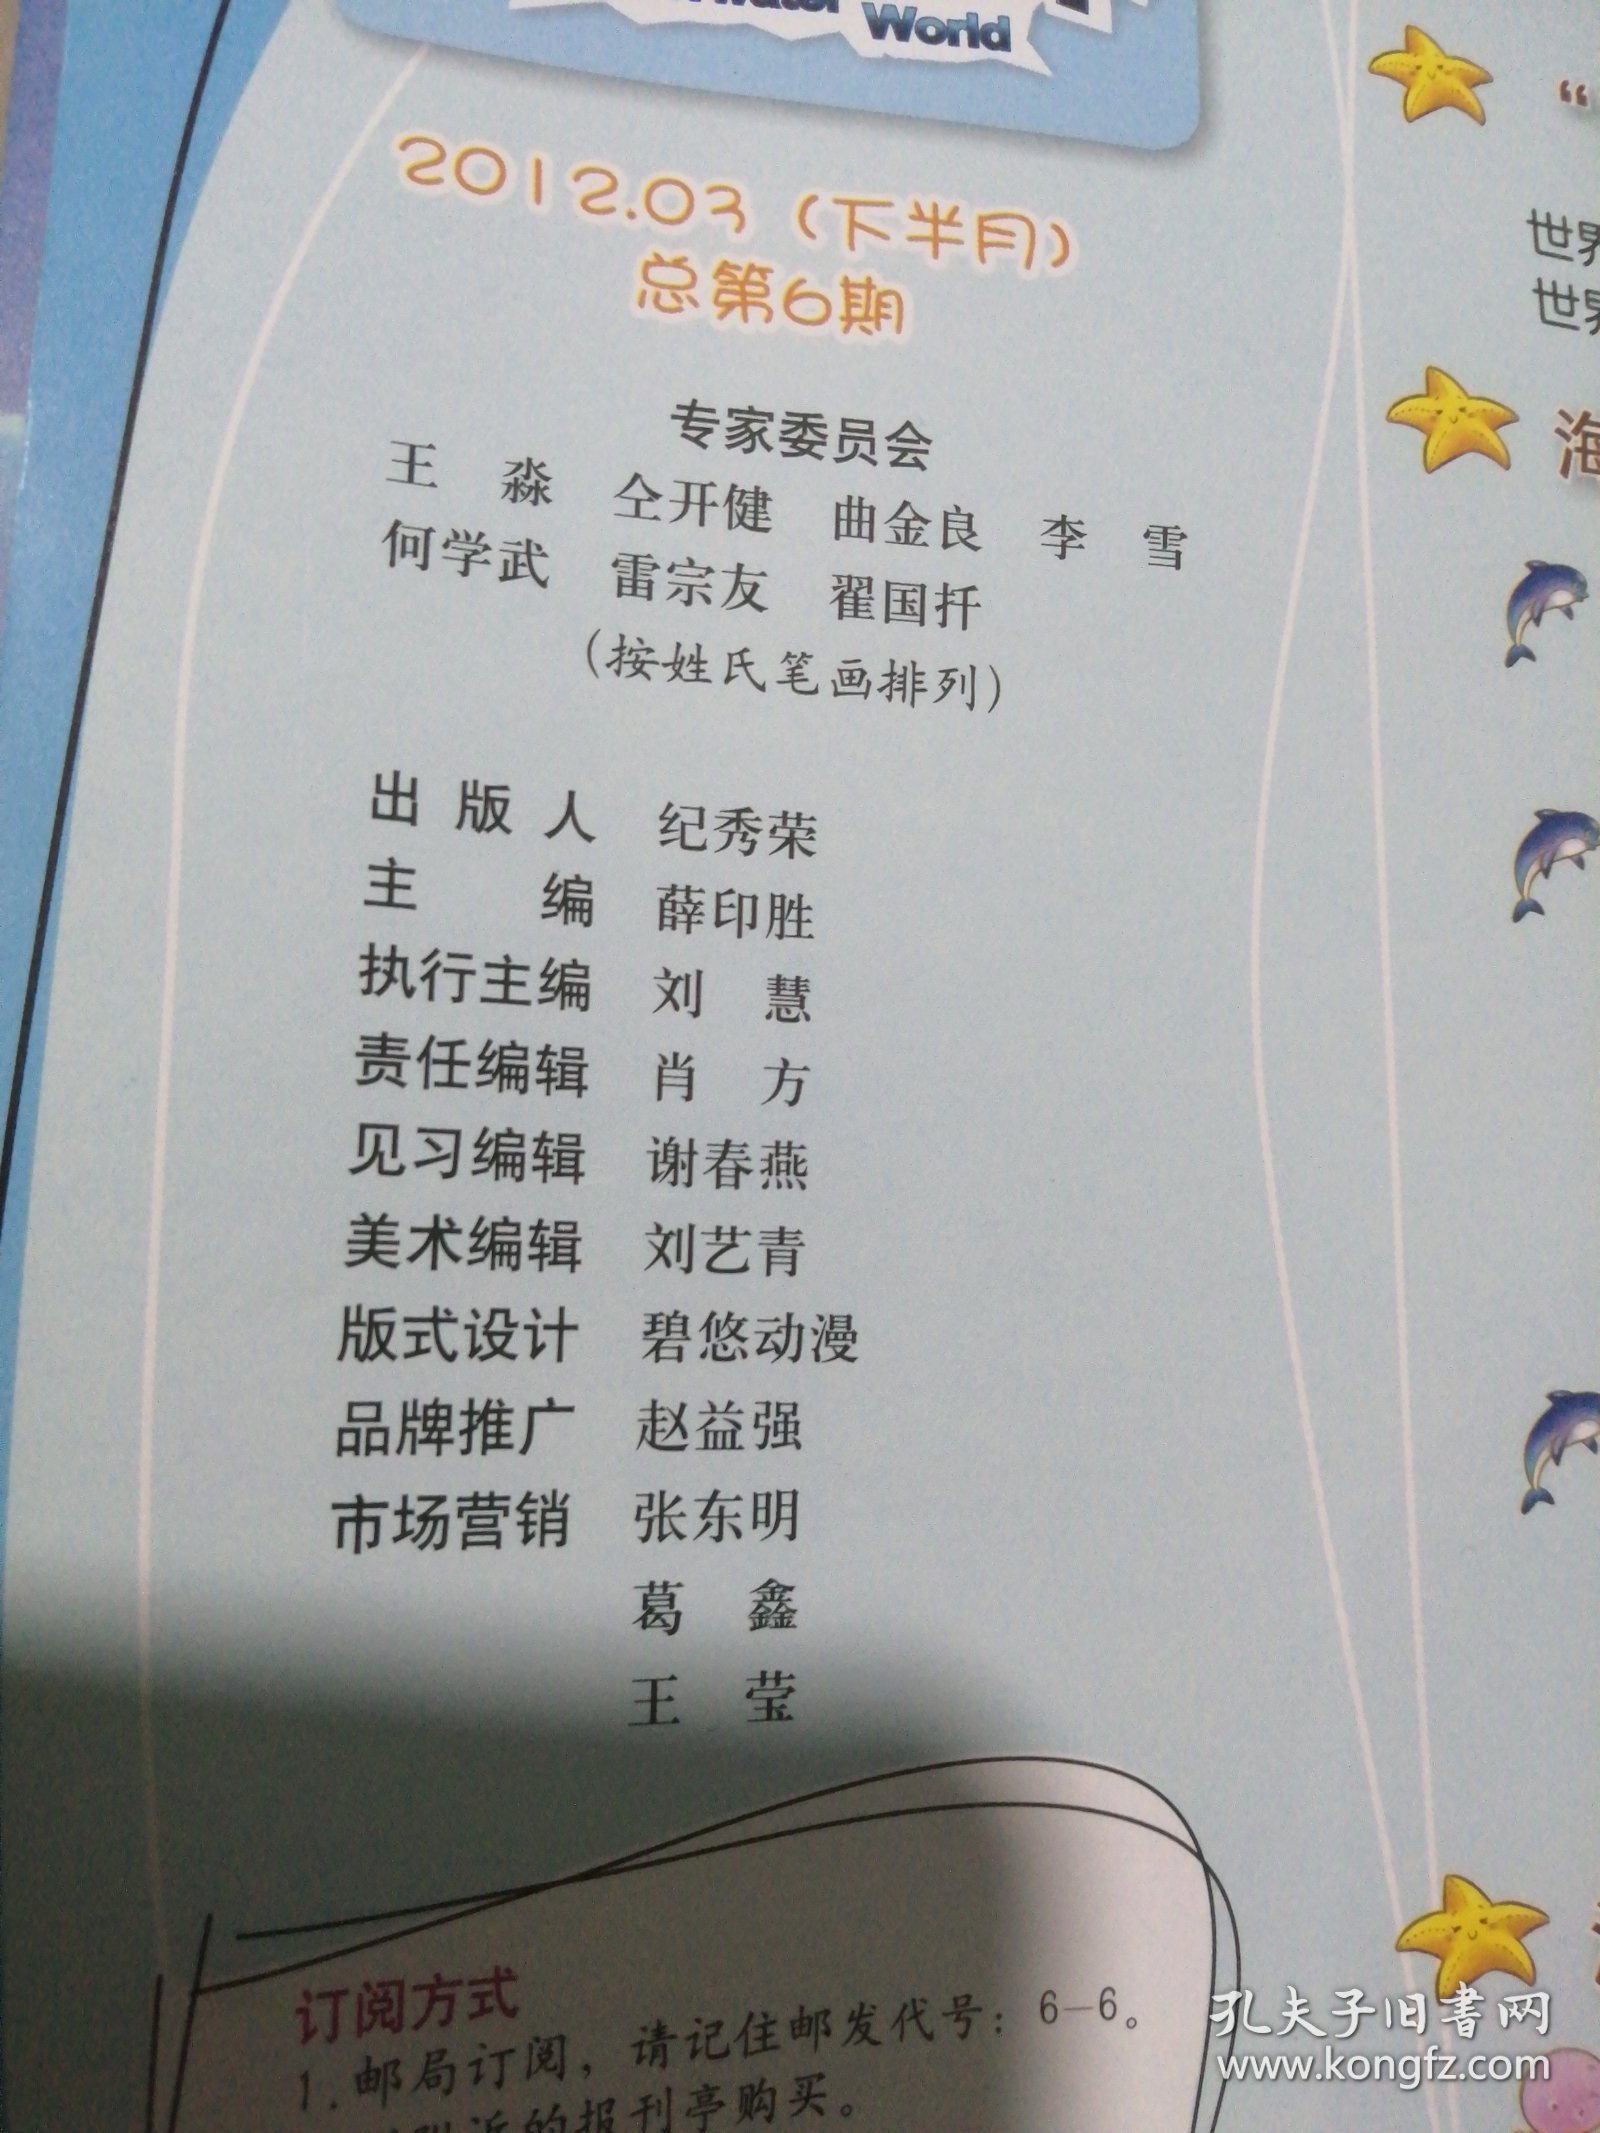 World
2012.03（下半月）
总第6期
专家委员会
王　淼　仝开健　曲金良　李　雪
何学武　雷宗友　翟国扦
（按姓氏笔画排列）
出版人　纪秀荣
主　编　薛印胜
执行主编　刘　慧
责任编辑　肖　方
见习编辑　谢春燕
美术编辑　刘艺青
版式设计　碧悠动漫
品牌推广　赵益强
市场营销　张东明
葛　鑫
王　莹
订阅方式
1.邮局订阅，请记住邮发代号：6-6。
的报刊亭购买。
“
世界
世界
海
孔夫子旧书网
www.kongfz.com